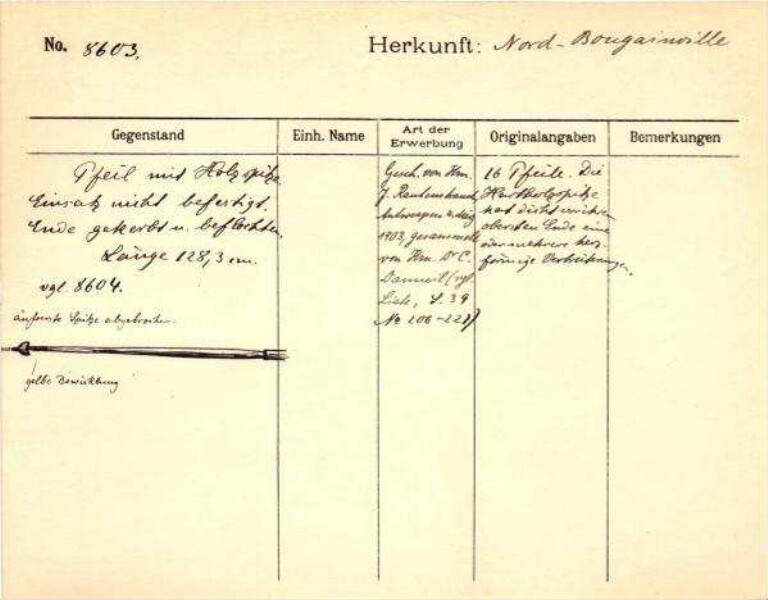 No. 8603.
Herkunft: Nord-Bougainville
Gegenstand
Einh. Name
Art der Erwerbung
Originalangaben
Bemerkungen
Pfeil mit Holzspitze
Einsatz nicht befestigt.
Ende gekerbt u. beflochten.
Länge 128,3 cm.
vgl. 8604.
äußerste Spitze abgebrochen.
gelbe Bewicklung
Gesch. von Hrn.
J. Rautenstrauch,
Antwerpen
1903, gesammelt
von Hrn. Dr. C.
Danneil (vgl.
Liste, S. 39
No 206-221)
16 Pfeile. Die
Hartholzspitze
hat dicht
obersten Ende eine
oder mehrere herz-
förmige Verdickungen.